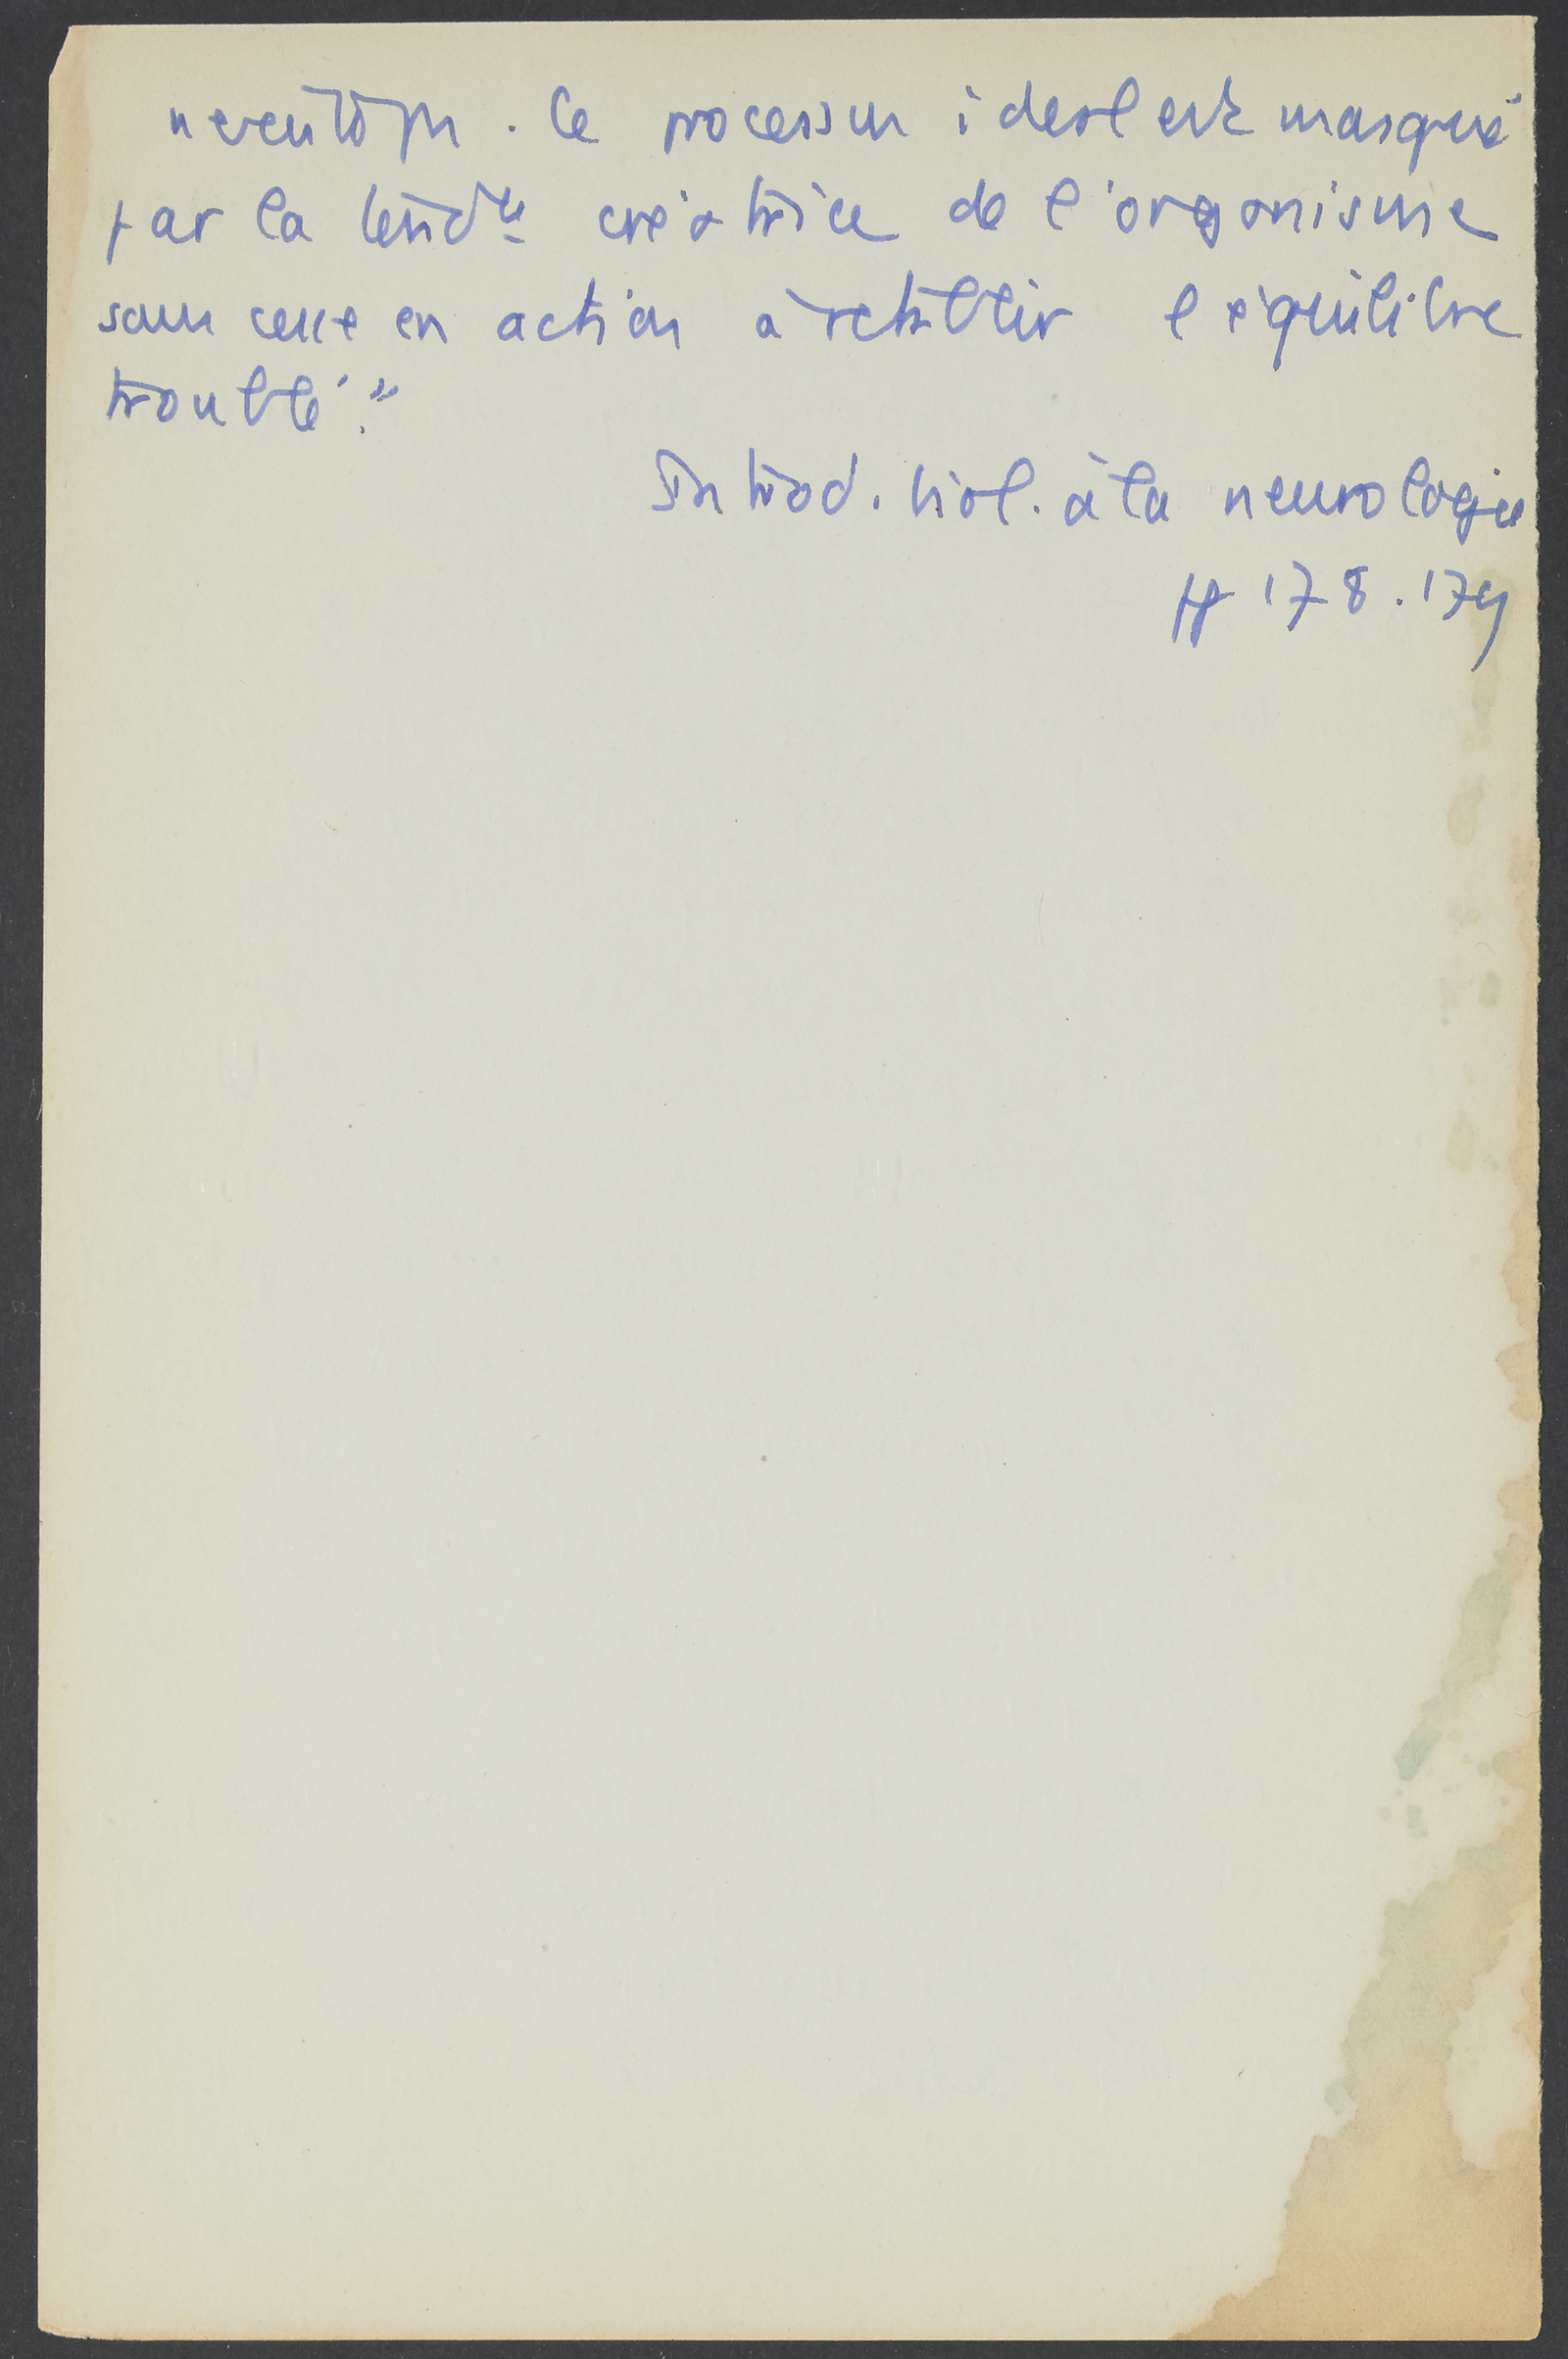 Ce processus idéal est masqué
par la tend^ce créatrice de l'organisme
sans cesse en action à rétablir l'équilibre
troublé."
Introd. biol. à la neurologie
pp 178.179